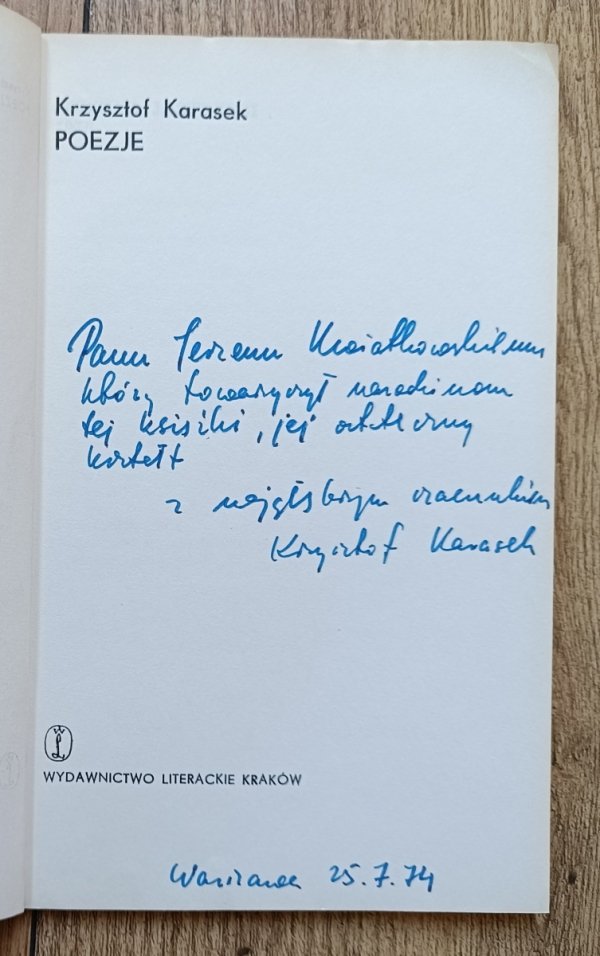 Krzysztof Karasek
POEZJE
Panu Jerzemu Kwiatkowskiemu
który towarzyszył narodzinom
tej książki, jej ostateczny
kształt
z najgłębszym szacunkiem
Krzysztof Karasek
WYDAWNICTWO LITERACKIE KRAKÓW
Warszawa 25.7.74